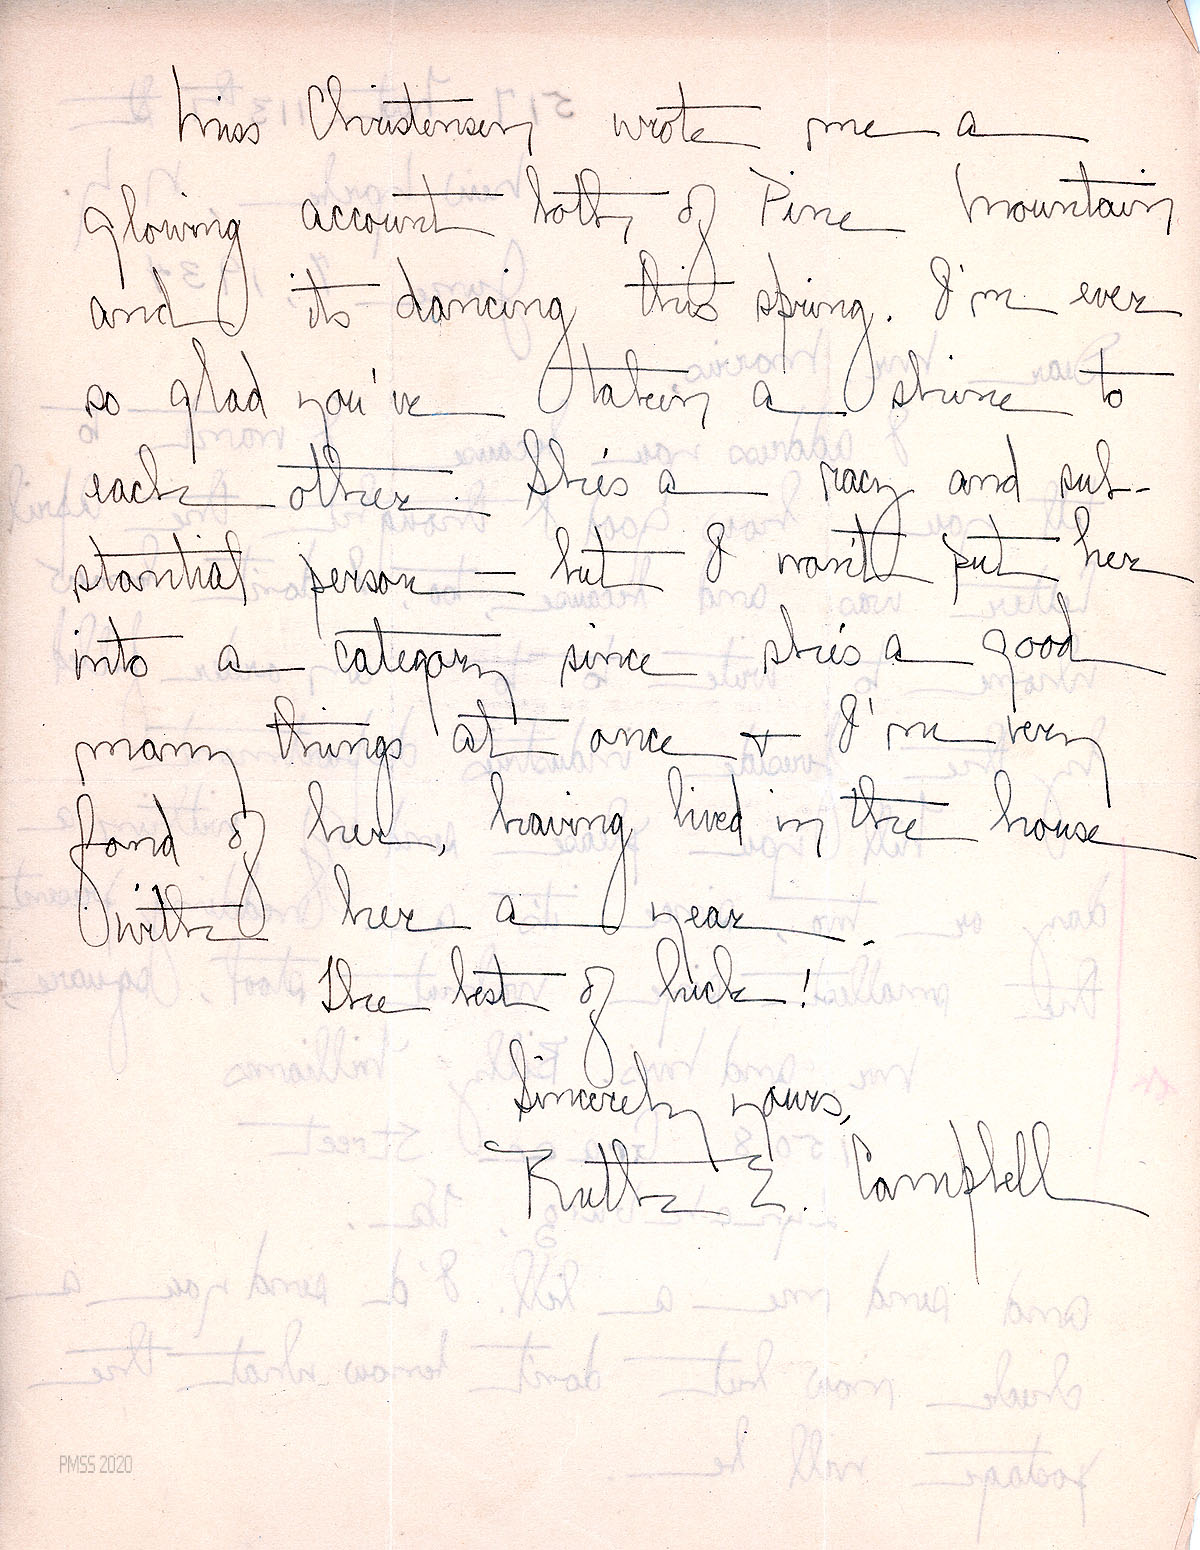 Miss Christensen wrote me a
glowing account both of Pine Mountain
and its dancing this spring. I'm ever
so glad you've taken a shine to
each other. She's a racy and sub-
stantial person = but I won't put her
into a category since she's a good
many things at once + I'm very
fond of her, having lived in the house
with her a year.
The best of luck!
Sincerely yours,
Ruth E. Campbell
PMSS 2020